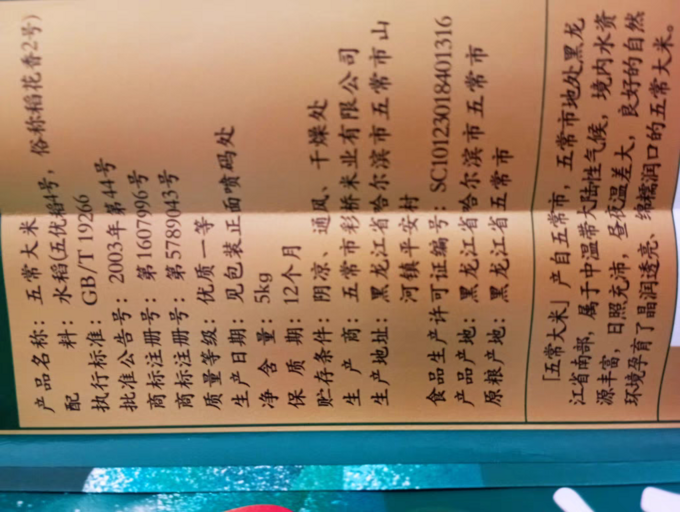 产品名称：五常大米
配 料：水稻(五优稻4号，俗称稻花香2号)
执行标准：GB/T 19266
批准公告号：2003年第44号
商标注册号：第1607996号
商标注册号：第5789043号
质量等级：优质一等
生产日期：见包装正面喷码处
净 含 量：5kg
保 质 期：12个月
贮存条件：阴凉、通风、干燥处
生 产 商：五常市彩桥米业有限公司
生产地址：黑龙江省哈尔滨市五常市山
河镇平安村
食品生产许可证编号：SC10123018401316
产品产地：黑龙江省哈尔滨市五常市
原粮产地：黑龙江省五常市
「五常大米」产自五常市，五常市地处黑龙
江省南部，属于中温带大陆性气候，境内水资
源丰富，日照充沛，昼夜温差大，良好的自然
环境孕育了晶润透亮、绵糯润口的五常大米。